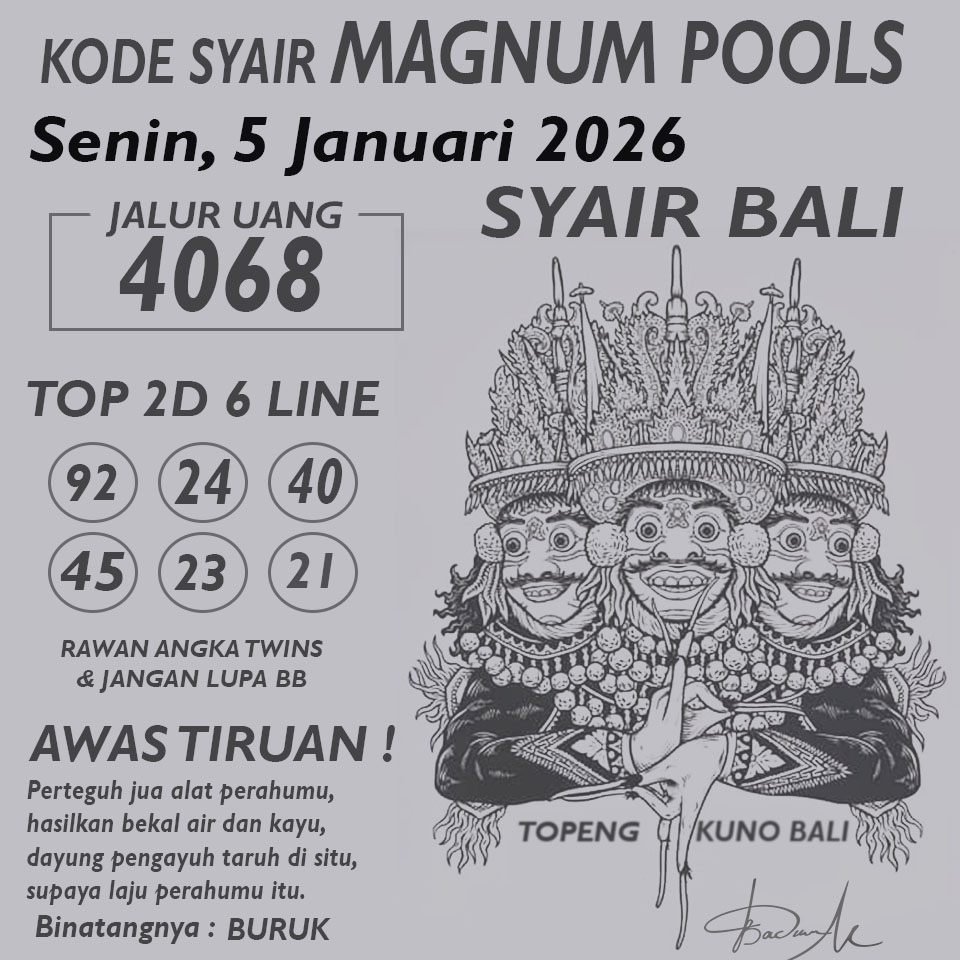 KODE SYAIR MAGNUM POOLS
Senin, 5 Januari 2026
SYAIR BALI
JALUR UANG
4068
TOP 2D 6 LINE
92 24 40
45 23 21
RAWAN ANGKA TWINS
& JANGAN LUPA BB
AWAS TIRUAN !
Perteguh jua alat perahumu,
hasilkan bekal air dan kayu,
dayung pengayuh taruh di situ,
supaya laju perahumu itu.
Binatangnya : BURUK
TOPENG KUNO BALI